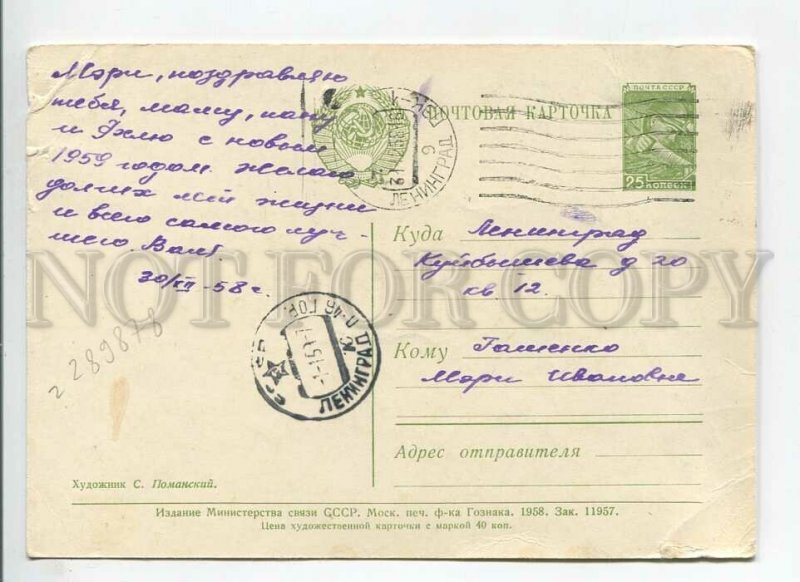 Мэри, поздравляю
тебя, маму, папу
и с новым
1959 годом. желаю
долгих лет жизни
и всего самого луч-
шего
30/XII-58 г.
2 289878
ПОЧТОВАЯ КАРТОЧКА
ПОЧТА СССР
25 КОПЕЕК
ЛЕНИНГРАД
9
Куда Ленинград
Куйбышева д 20
кв. 12.
Кому
Мэри Ивановна
Адрес отправителя
ЛЕНИНГРАД
Художник С. Поманский.
Издание Министерства связи СССР. Моск. печ. ф-ка Гознака. 1958. Зак. 11957.
Цена художественной карточки с маркой 40 коп.
NOT FOR COPY